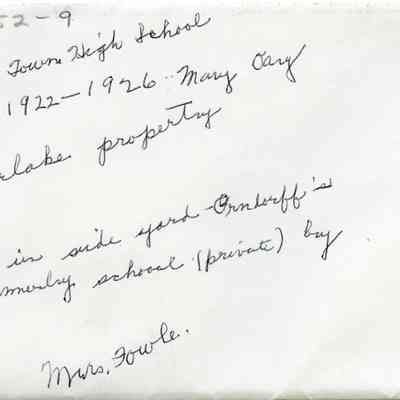 52-9
Town High School
1922-1926 Mary Cary
rlake property
in side yard Orndorff's
merly schooal (private) by
Mrs. Fowle.